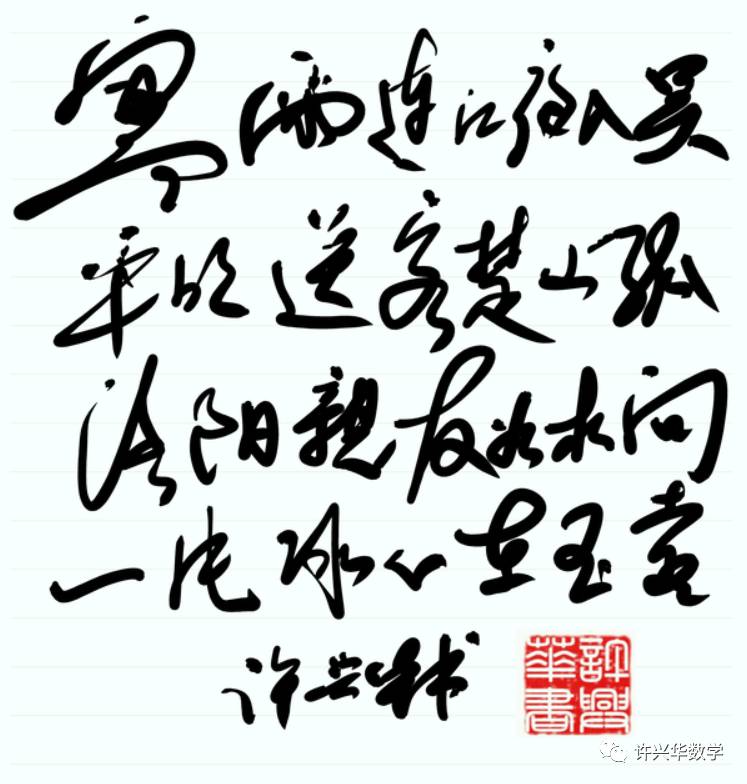 寒雨连江夜入吴
平明送客楚山孤
洛阳親友如相问
一片冰心在玉壶
许兴华书
許興華書
许兴华数学